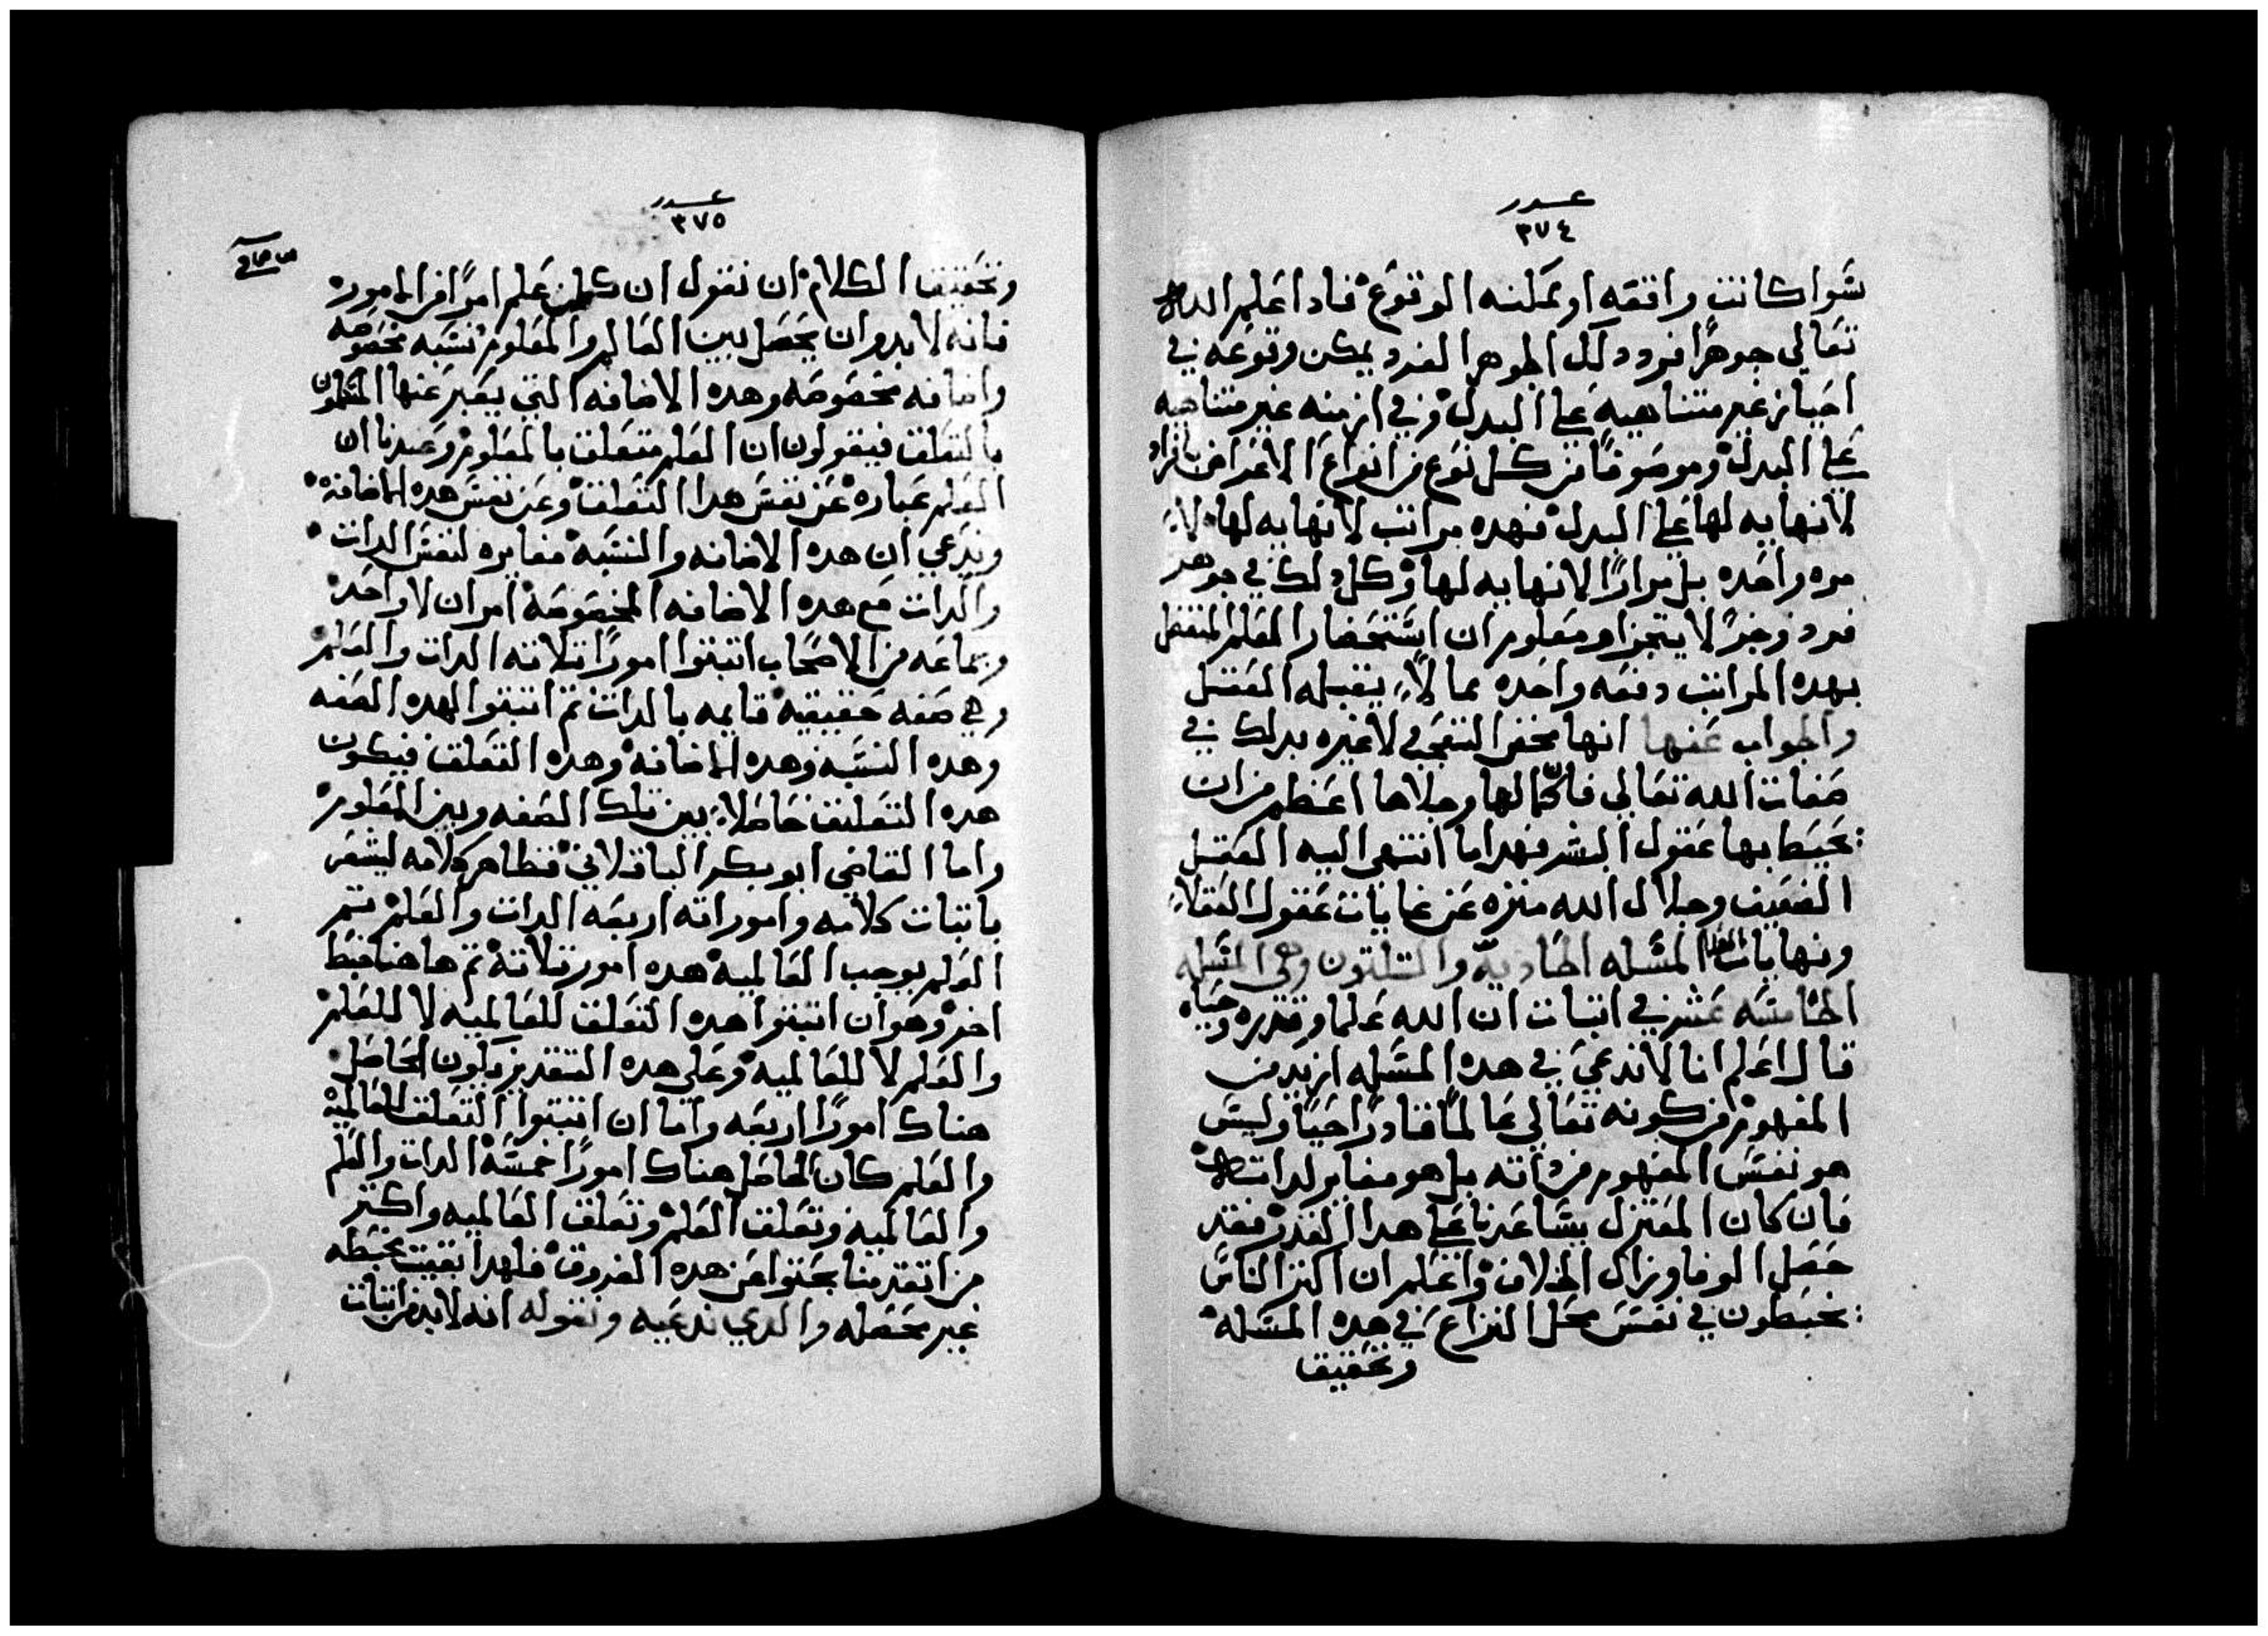 عدد
٣٧٤
سوا كانت واقعه او ممكنه الوقوع فادا علم الله
تعالي جوهرًا فرد دلك الجوهر الفرد يمكن وقوعه في
احياز غير متناهيه علي البدل وفي ازمنه غير متناهيه
علي البدل وموصوفًا من كل نوع من انواع الاعراض بافراد
لانهايه لها علي البدل فهده مراتب لانهايه لها لا
مره واحده بل مرارًا لانهايه لها وكل دلك في جوهر
فرد وجزءً لا يتجزا ومعلوم ان استحضار العلم المنفصل
بهده المراتب دفعه واحده مما لا يقبله العقل
والجواب عنها انها محض التعجب لا غيره بدلك في
صفات الله تعالي فان كمالها وجلالها اعظم من ان
يحيط بها عقول البشر فهدا ما انتهي اليه العقل
الضعيف وجلال الله منزه عن غايات عقول العقلاء
ونهايات العلما المسله الحاديه والتلتون وهي المسله
الخامسه عشر في اتبات ان الله علما وقدره وحياه
قال اعلم انا لا ندعي في هده المسله ازيد من
المفهوم من كونه تعالي عالمًا قادرًا حيًا وليس
هو نفس المفهوم من داته بل هو مغاير لداته
فان كان المعتزل يساعدنا علي هدا القدر فقد
حصل الوفا وزال الخلاف واعلم ان اكتر الناس
يخبطون في نفس محل النزاع في هده المسله
وتحقيق
عدد
٣٧٥
وتحقيق الكلام ان نقول ان كلمن علم امرًا من الامور
فانه لا بد وان يحصل بين العالم والمعلوم نسبه مخصوصه
واضافه مخصوصه وهده الاضافه التي يعبر عنها المتكلمون
بالتعلق فيقولون ان العلم متعلق بالمعلوم وعندنا ان
العلم عباره عن نفس هدا التعلق وعن نفس هده الاضافه
وندعي ان هده الاضافه والنسبه مغايره لنفس الدات
والدات مع هده الاضافه المخصوصه امران لا واحد
وجماعه من الاصحاب اتبتوا امورًا تلاته الدات والعلم
وهي صفه حقيقيه قايمه بالدات تم اتبتوا لهده الصفه
وهده النسبه وهده الاضافه وهده التعلق فيكون
هده التعليق حاصلاً بين تلك الصفه وبين المعلوم
واما القاضي ابو بكر الباقلاني فظاهر كلامه ليشعر
باتبات كلامه وامور اته اربعه الدات والعلم تم
العلم يوجب العالميه هده امور تلاته تم هاهنا خبط
اخر وهو ان اتبتوا هده التعلق للعالميه لا للعلم
والعلم لا للعالميه وعلي هده التقدير يكون الحاصل
هناك امورًا اربعه واما ان اتبتوا التعلق للعالميه
والعلم كان الحاصل هناك امورًا خمسه الدات والعلم
والعالميه وتعلق العلم وتعلق العالميه واكتر
من اتقدمنا بحتوا عن هده الفروق فلهدا بقيت مخبطه
غير محصله والدي ندعيه ونقوله انه لا بد من اتبات